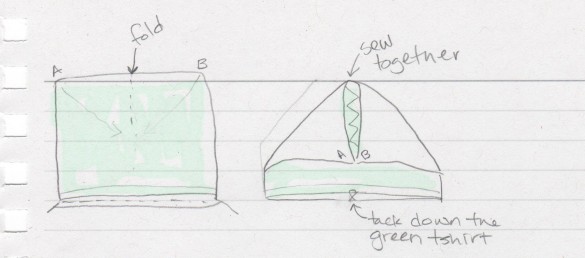 fold
A
B
sew
together
A B
tack down the
green tshirt